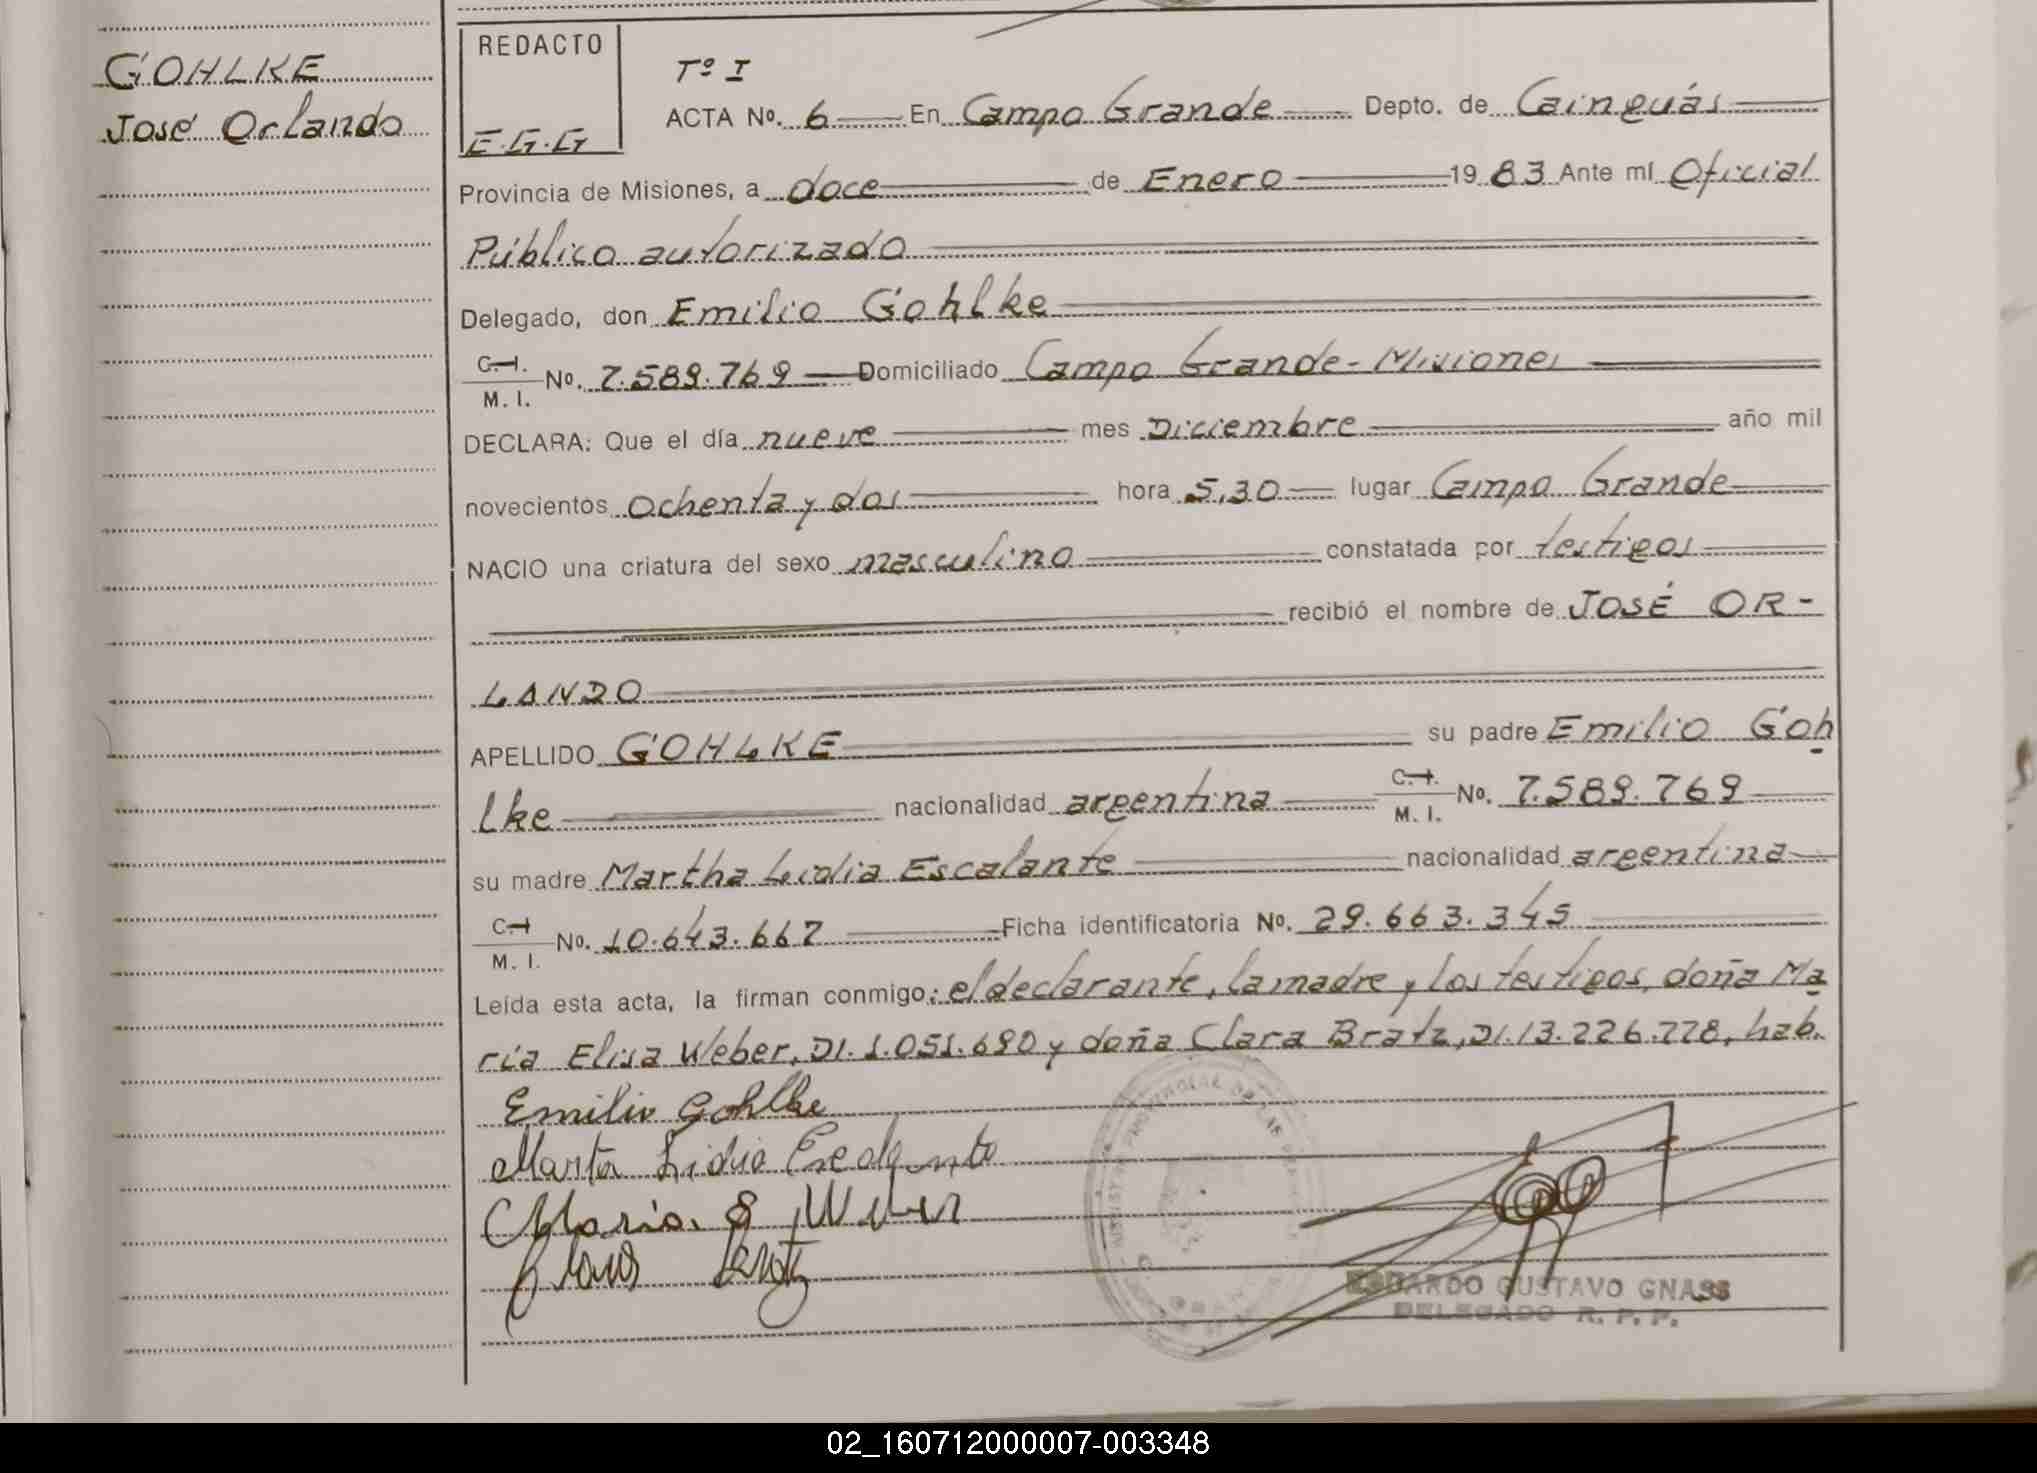 GOHLKE
José Orlando
REDACTO
E.G.G
Tº I
ACTA Nº. 6 En Campo Grande Depto. de Cainguás
Provincia de Misiones, a doce de Enero 1983 Ante mí Oficial
Público autorizado
Delegado, don Emilio Gohlke
C.I.
M. I. No. 7.589.769 Domiciliado Campo Grande-Misiones
DECLARA: Que el día nueve mes Diciembre año mil
novecientos ochenta y dos hora 5,30 lugar Campo Grande
NACIO una criatura del sexo masculino constatada por testigos
recibió el nombre de JOSÉ OR-
LANDO
APELLIDO GOHLKE su padre Emilio Goh
lke nacionalidad argentina C.I. M. I. No. 7.589.769
su madre Martha Lidia Escalante nacionalidad argentina
C.I. M. I. No. 10.643.667 Ficha identificatoria Nº. 29.663.345
Leída esta acta, la firman conmigo: el declarante, la madre y los testigos, doña Ma
ría Elisa Weber, DI. 1.051.690 y doña Clara Bratz, DI. 13.226.778, hab.
Emilio Gohlke
Marta Lidia Escalante
Maria E Weber
Clara Bratz
EDUARDO GUSTAVO GNASS
DELEGADO R. P. P.
02_160712000007-003348